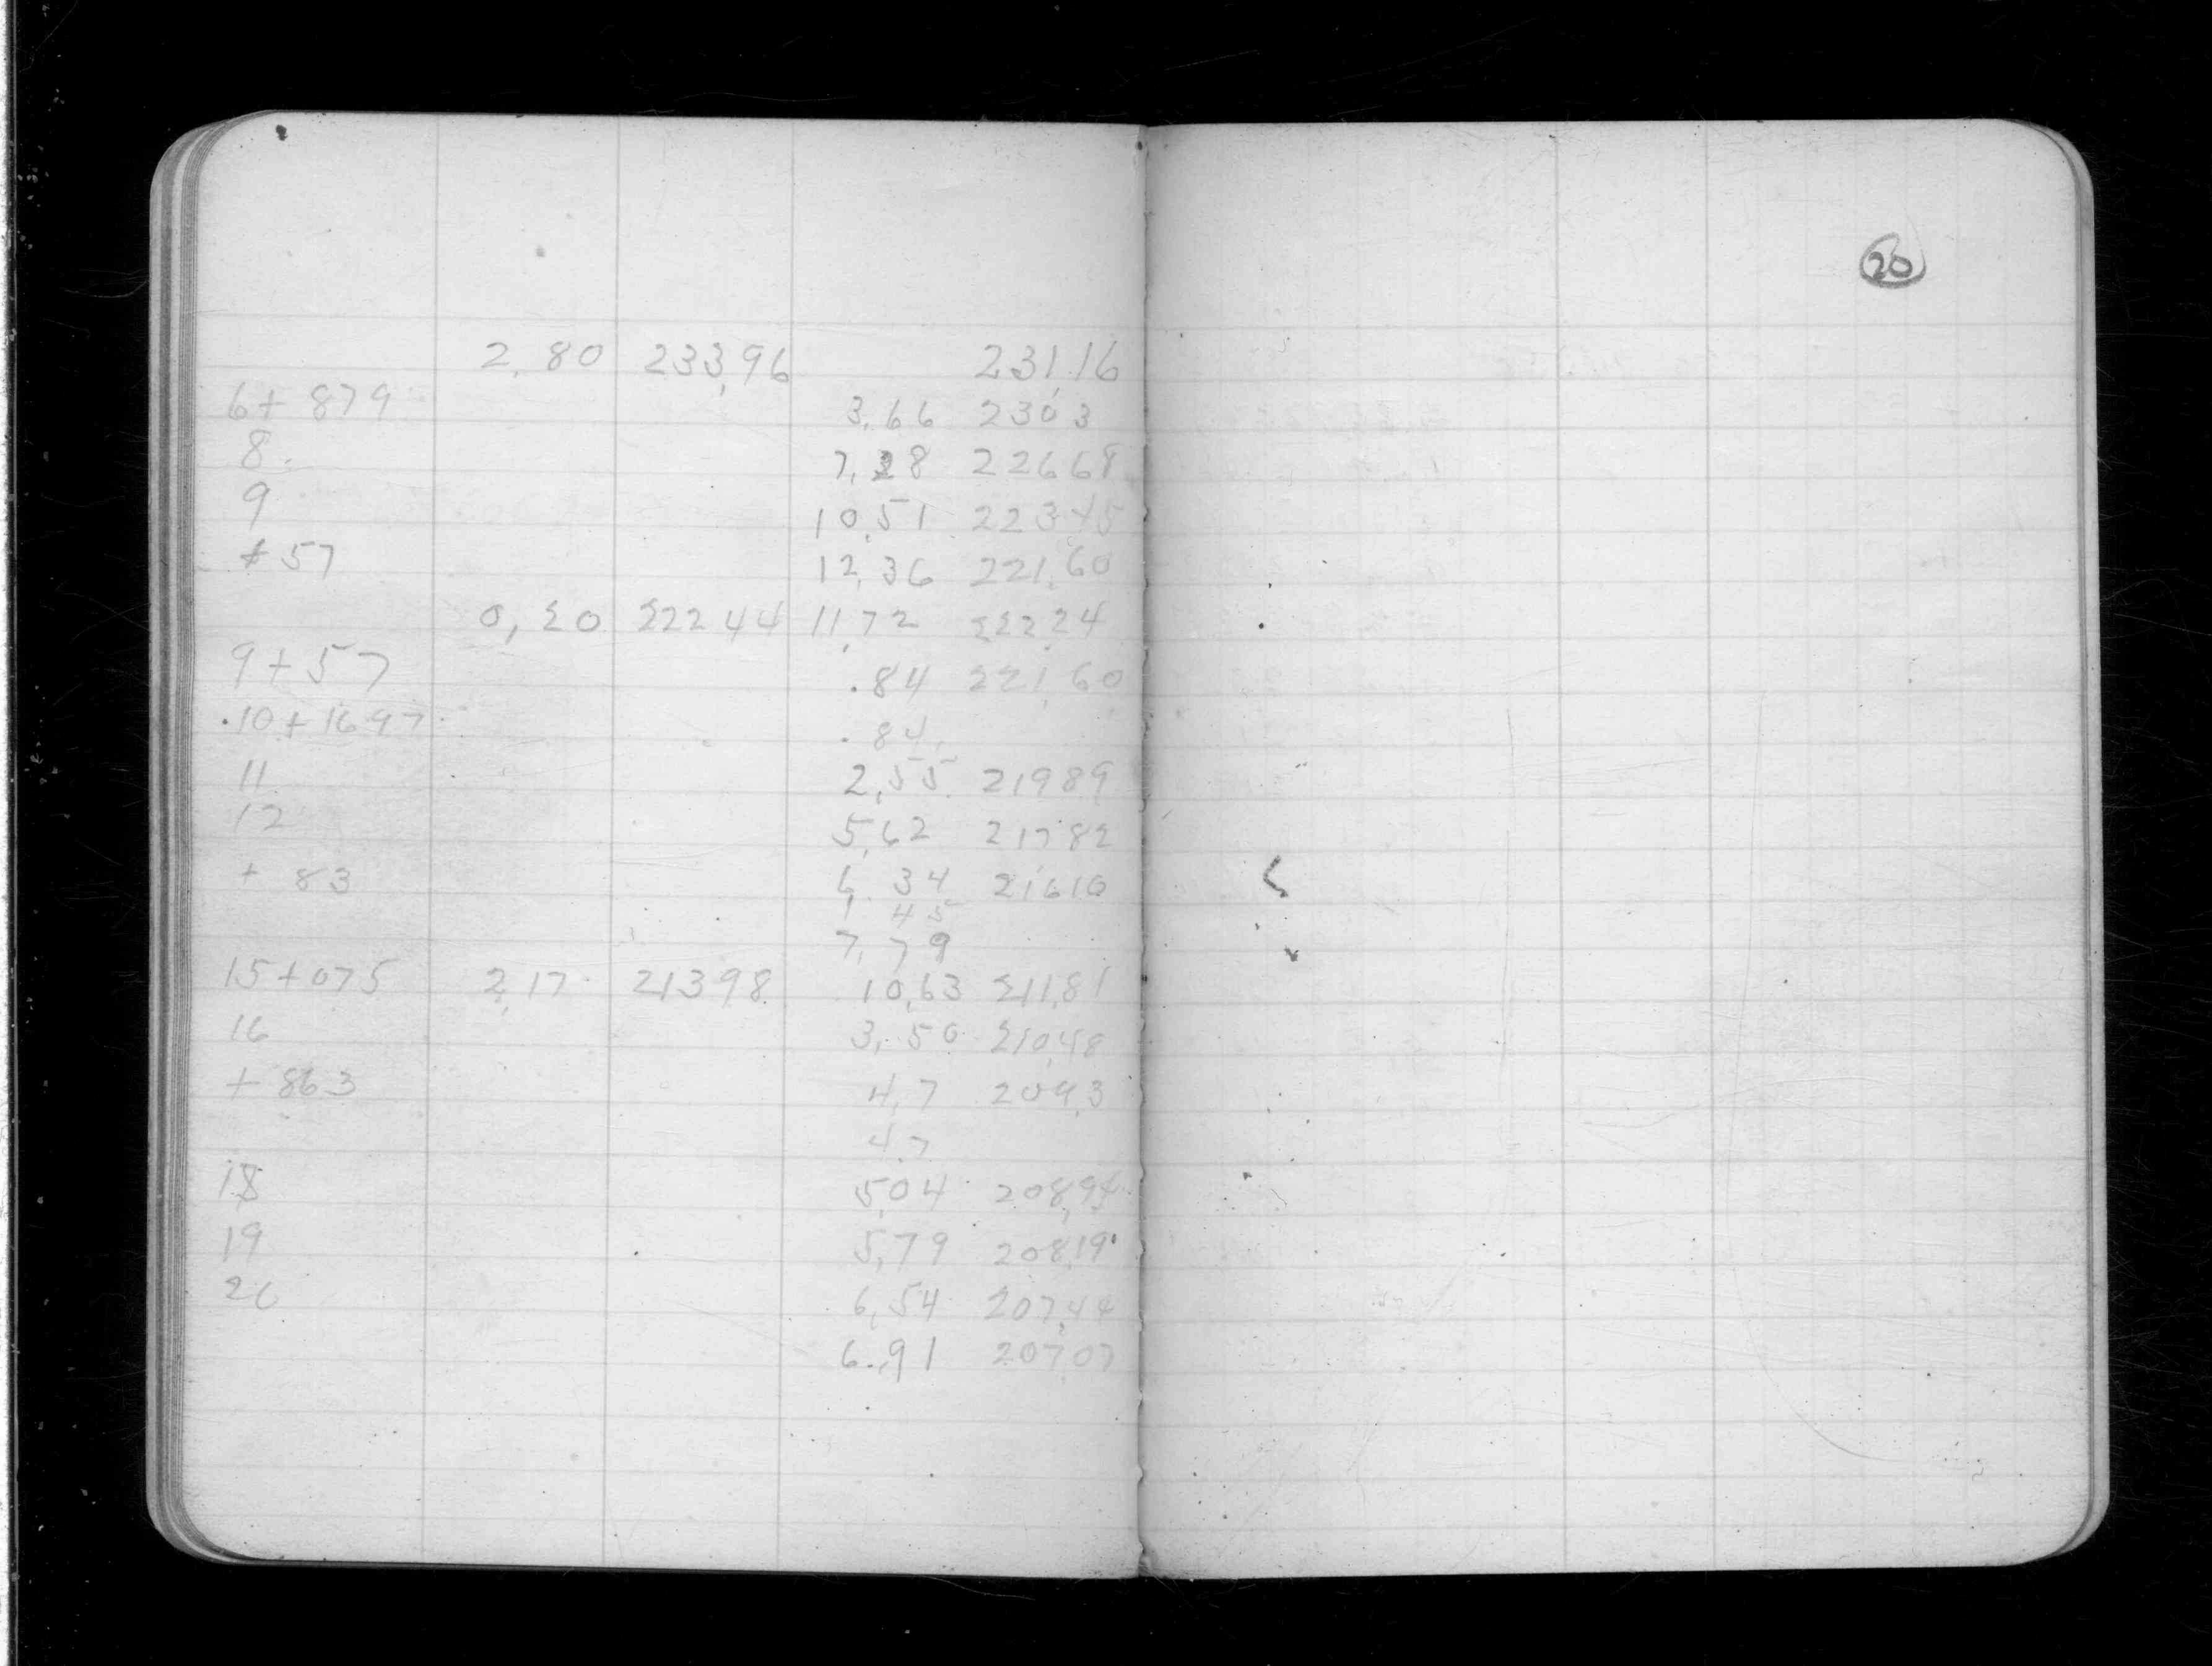 2,80 233,96 231,16
6+ 879 3,66 230,3
8. 7,28 22668
9 10,51 22345
+57 12,36 221,60
0,20 22244 11,72 222,24
9+57 .84 221,60
.10+1697 .84
11 2,55 21989
12 5,62 21782
+ 83 6,34 21610
1,45
7,79
15+075 2,17 21398 10,63 211,81
16 3,50 210,48
+ 863 4,7 209,3
4,7
18 5,04 208,94
19 5,79 208,19
20 6,54 207,44
6.,91 20707
20